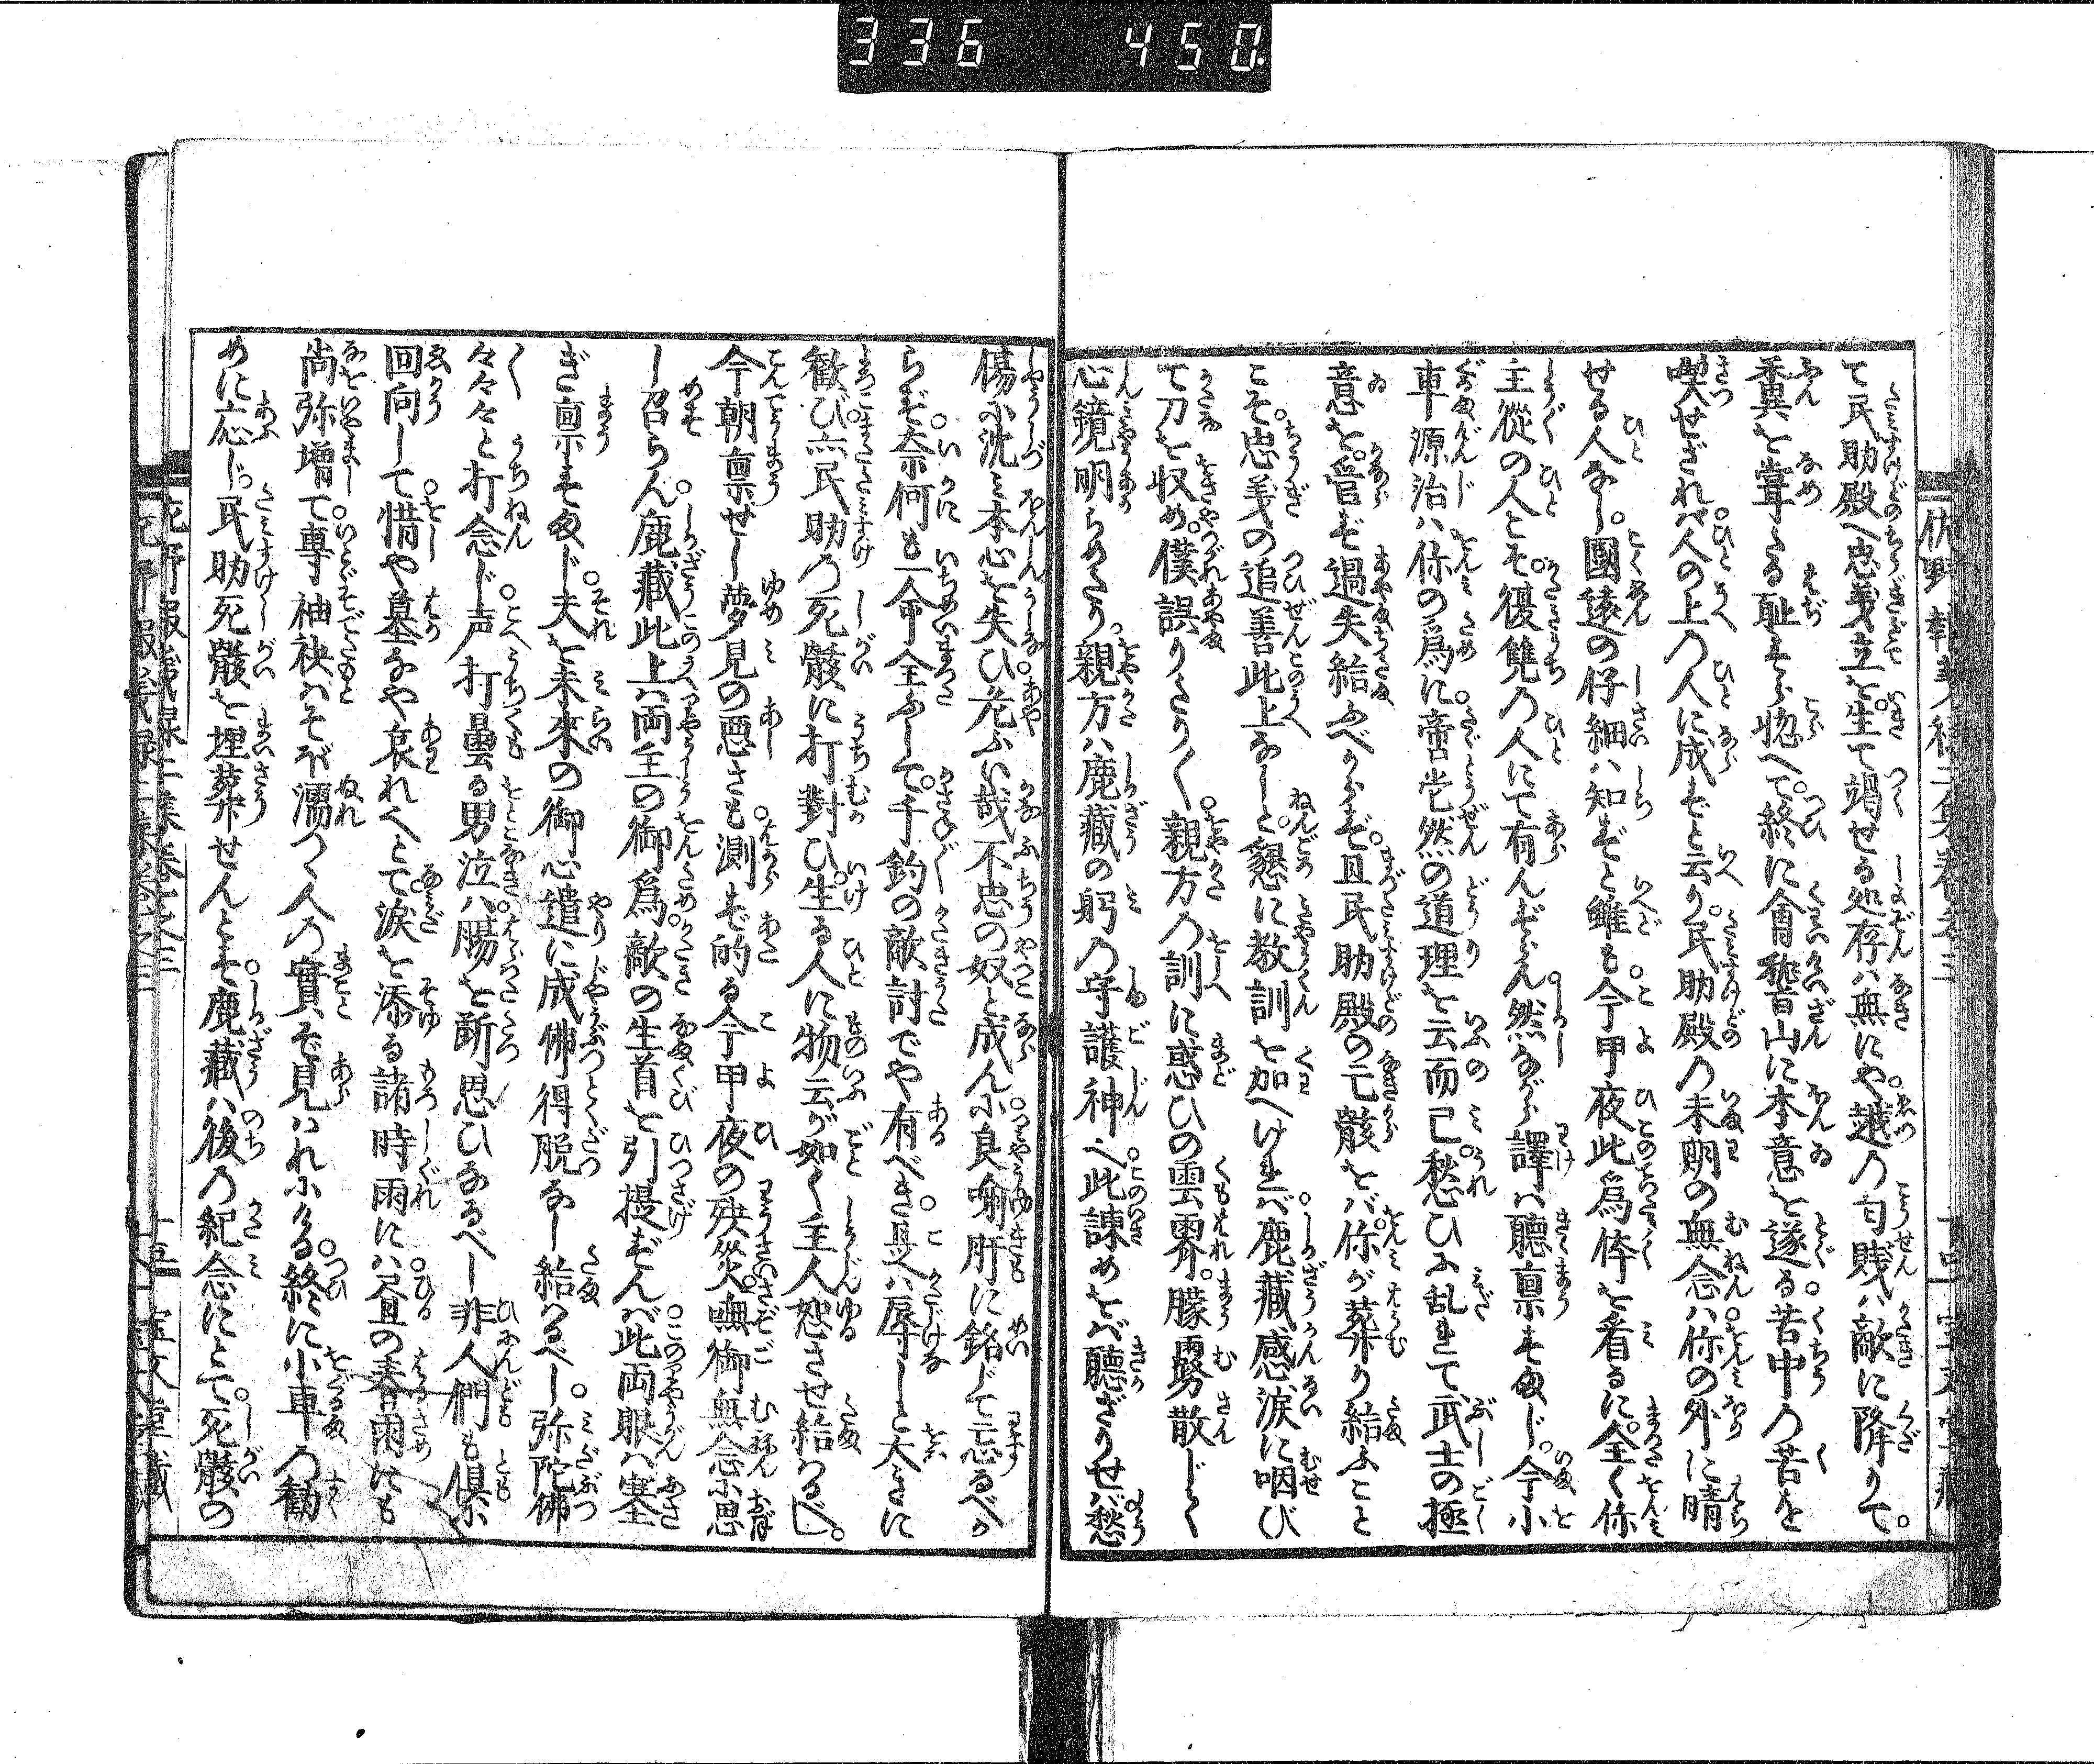 336 450
て民助殿へ忠義立を。生て竭せる処存ハ無にや。越の勾賤ハ敵に降りて。
糞を甞たる耻をも惚へで。終に會稽山に本意を遂る。苦中の苦を
喫せざれバ人の上の人に成ずと云り。民助殿の未明の無念ハ。你の外に晴
せる人なし。國遠の仔細ハ知ずと雖も。今甲夜此爲体を看るに。全く你
主從の人こそ。復讐の人にて有んずらん。然ながら譯ハ聽禀すまじ。今小
車源治ハ你の爲に。啻当然の道理を云而已。愁ひに乱れて武士の極
意を。管ず過失給ふべからず。且民助殿の亡骸をバ。你が葬り給ふこと
こそ。忠義の追善此上なしと。懇に教訓を加へけれバ。鹿藏感涙に咽び
て刀を収め。僕誤りたり〱。親方の訓に惑ひの雲霽。朦霧散じく
心鏡明らめたり。親方ハ鹿藏の躬の守護神へ。此諫めをバ聽ざりせバ。愁
傷に沈ミ本心を失ひ。危ふい哉不忠の奴と成んに。良喻肝に銘じて忘るべか
らず。奈何も一命全ふして。千釣の敵討でや有べき。是ハ辱しと大きに
歡び。亦民助の死骸に打對ひ。生る人に物云が如く。主人恕させ給はるべし。
今朝禀せし夢見の悪さも。測ず的る今甲夜の殃災。嘸御無念に思
し召らん。鹿藏此上ハ両主の御爲。敵の生首を引提ずんバ。此両眼ハ塞
ぎ禀すまじ。夫を未來の御心遣に。成佛得脱なし給はるべし。弥陀佛
々々々と打念じ。声打曇る男泣ハ。腸を斷思ひなるべし。非人們も俱に
回向して。惜や墓なや哀れへとて。涙を添る諸時雨にハ。昼の春雨にも
尚弥増て。専袖袂ハそぼ濡つ。人の實ぞ見はれにける。終に小車の勧
めに応じ。民助死骸を埋葬せんとす。鹿藏ハ後の紀念にとて。死骸の